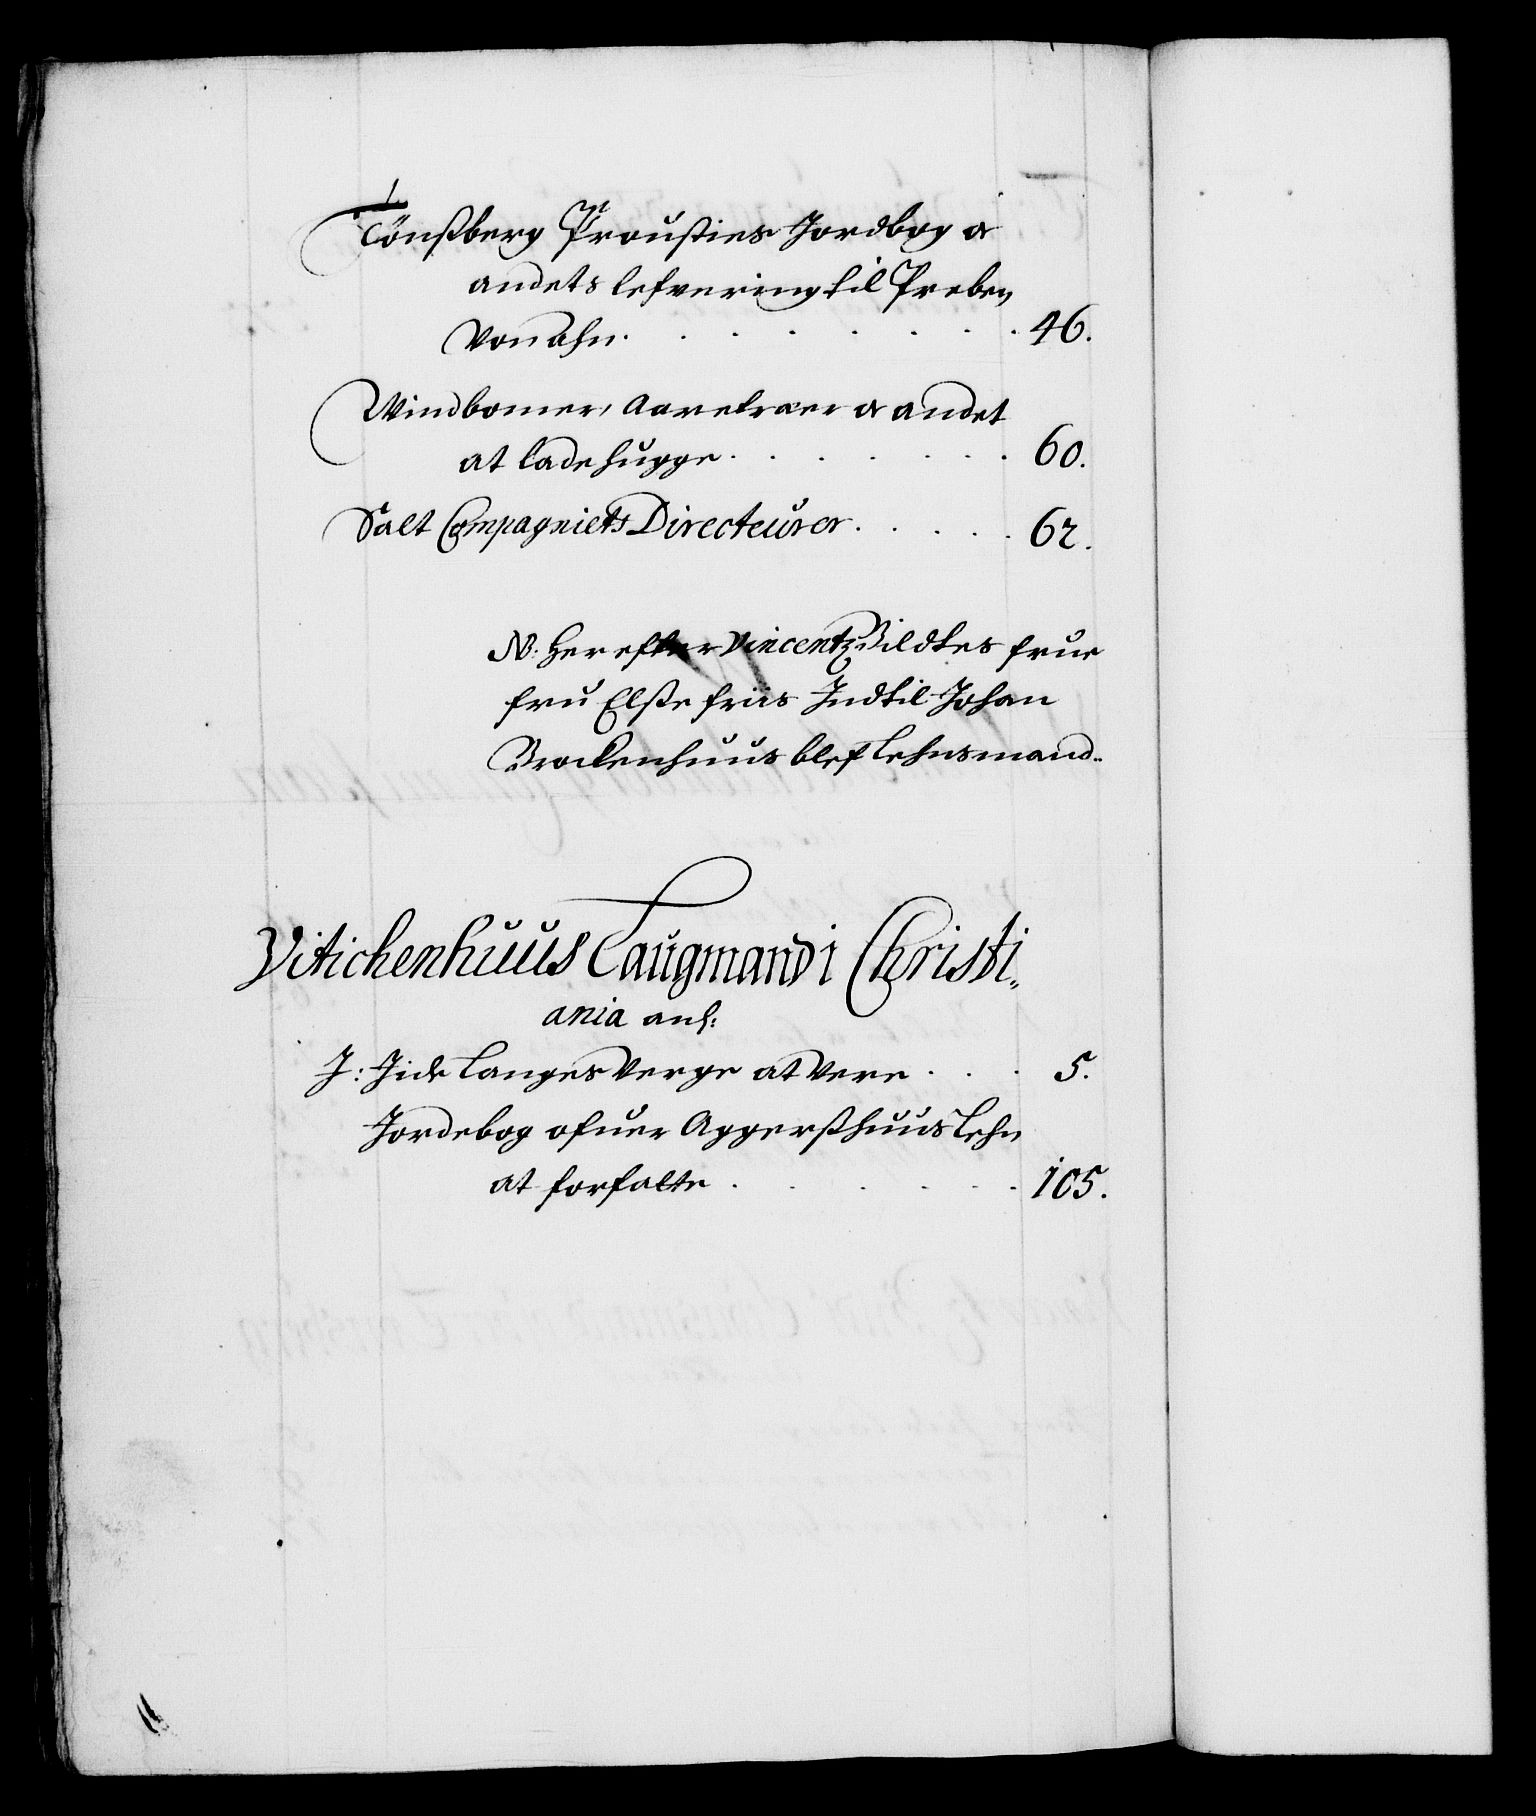 Tönßberg Prousties Jordbog &
andets lefvering til Preben
Von Ahn. 46.
Windbomer, Aaretræer & andet
at lade hugge. 60.
Salt Compagniets Directeurer. 62.
NB. Her efter Vincentz Bildtes frue
fru Elße friis Indtil Johan
Brockenhuus blef Lehnsmand..
Vitichenhuus Laugmand i Christi„
ania anl:
J: Jide Langes Verge at Vere 5.
Jordebog ofuer Aggerßhuus Lehn
at forfatte 105.